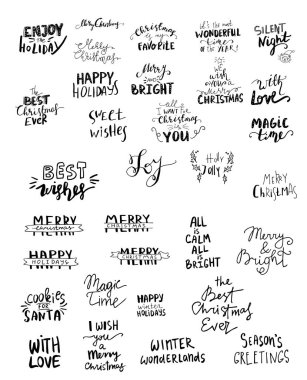 ENJOY
the
HOLIDAY
Merry Christmas
Merry
Christmas
Christmas
is my
FAVORITE
it's the most
WONDERFUL
time
OF THE YEAR!
SILENT
Night
The
BEST
Christmas
EVER
HAPPY
HOLIDAYS
Merry
AND
BRIGHT
we
wish
you a
MERRY
CHRISTMAS
with
Love
sweet
wishes
all
I want for
Christmas
is
YOU
MAGIC
time
BEST
wishes
Joy
Holly
Jolly
MERRY
CHRISTMAS
MERRY
christmas
MERRY
CHRISTMAS
ALL
is
CALM
ALL
is
BRIGHT
Merry
&
Bright
HAPPY
HOLIDAYS
MERRY
CHRISTMAS
cookies
FOR
SANTA
Magic
Time
HAPPY
winter
HOLIDAYS
the
Best
Christmas
Ever
WITH
LOVE
I WISH
you
a
Merry
Christmas
WINTER
wonderlands
SEASON'S
GREETINGS